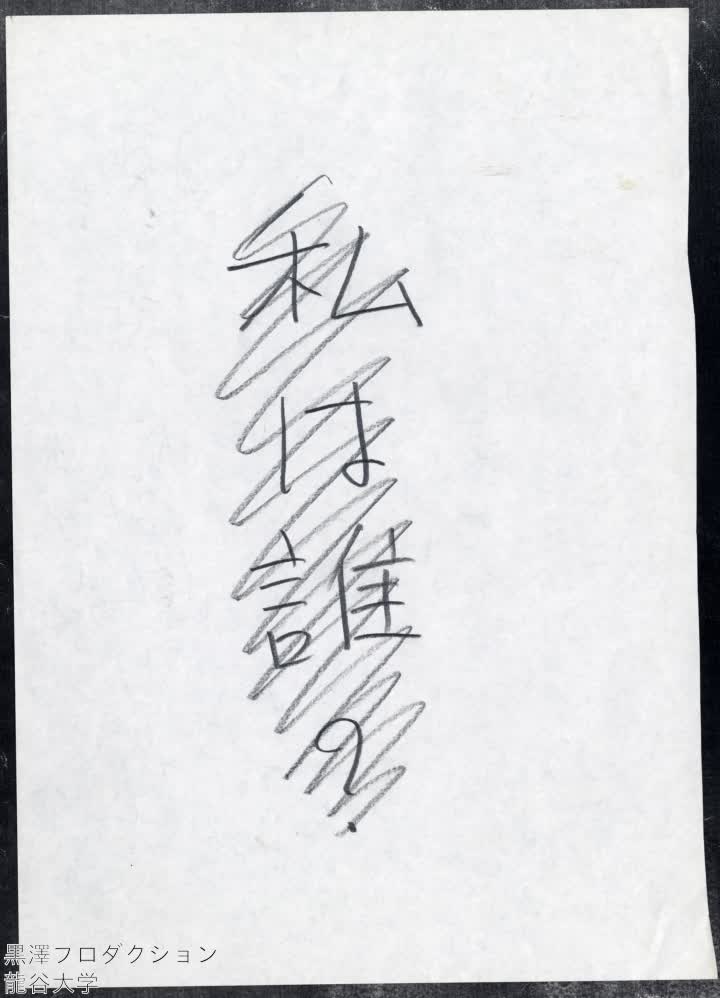 私は誰?
黒澤フロダクション
龍谷大学